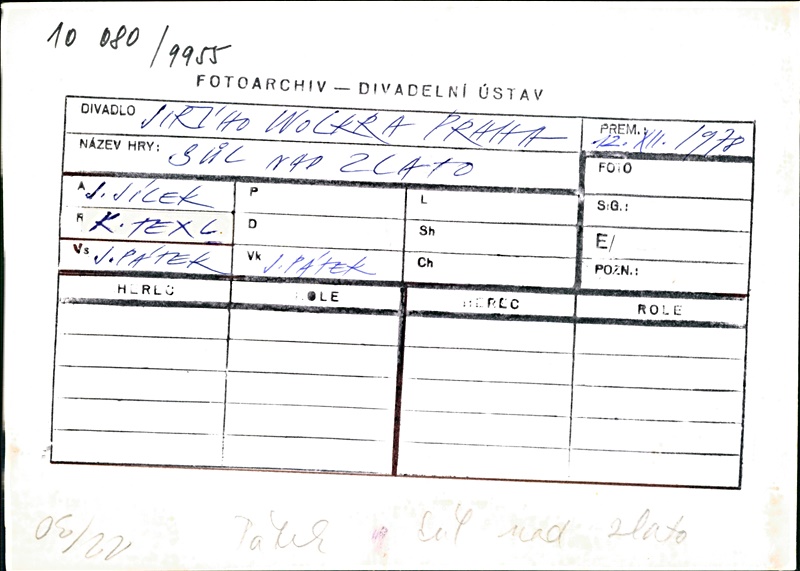 10 080/9955
FOTOARCHIV — DIVADELNÍ ÚSTAV
DIVADLO JIŘÍHO WOLKRA PRAHA PREM.: 12. XII. 1978
NÁZEV HRY: SŮL NAD ZLATO FOTO
A J. JÍLEK P L SIG.:
R K. TEXL D Sh E/
Vs J. PÁTEK Vk J. PÁTEK Ch POZN.:
HEREC ROLE HEREC ROLE
Pátek Sůl nad zlato